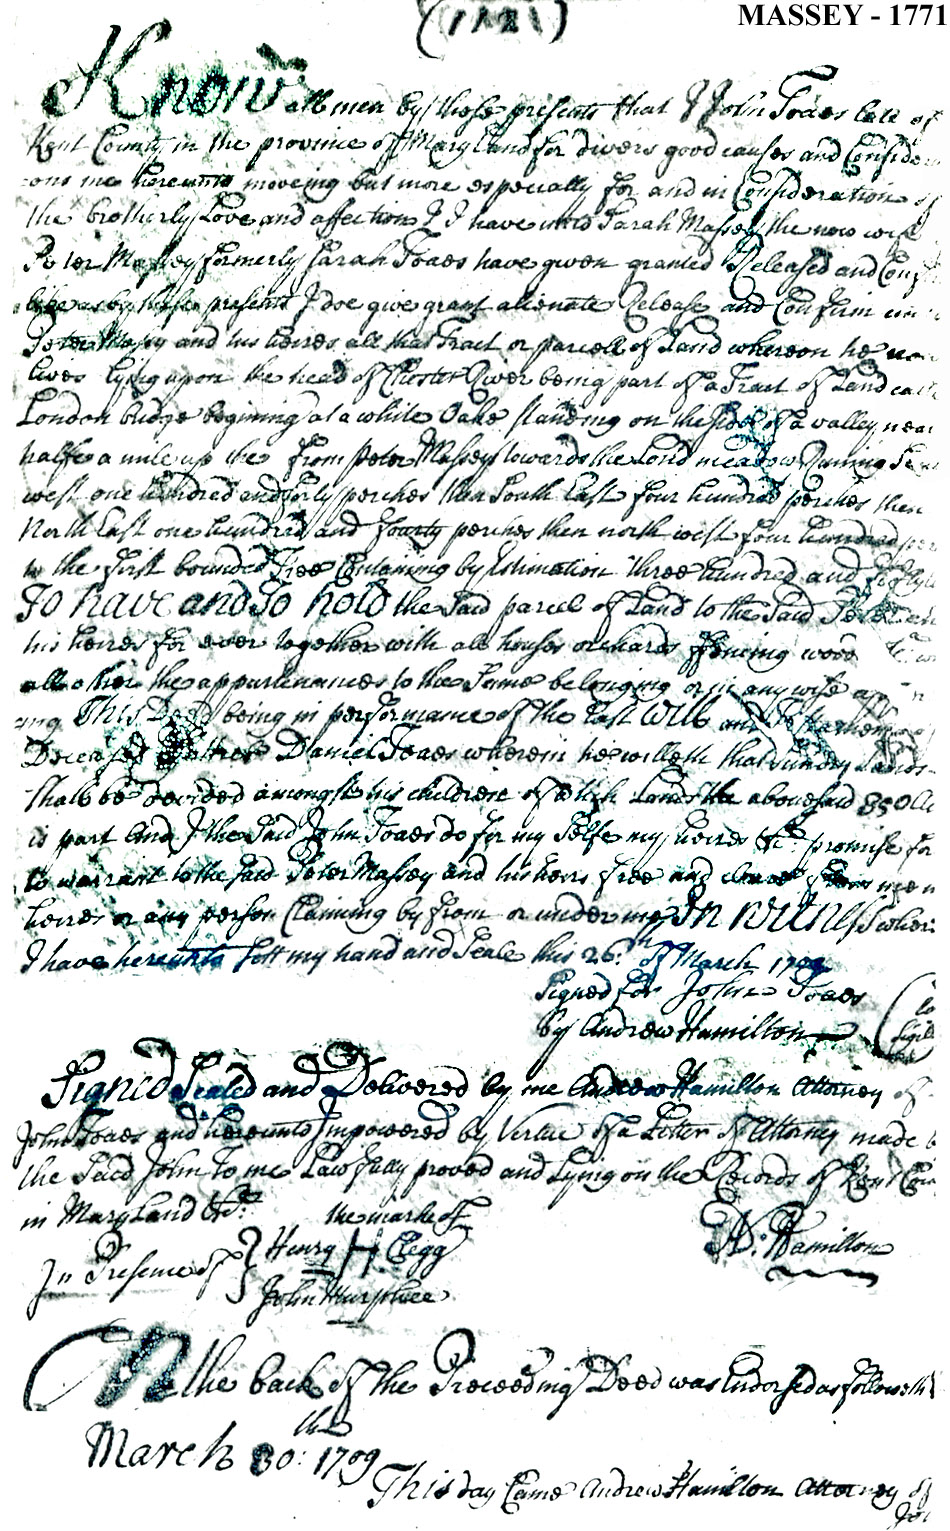 MASSEY - 1771
Know all men by these presents that I John Toaes late of
Kent County in the province of Maryland for divers good causes and Consider
ons me hereunto moveing but more especially for and in Consideration of
the brotherly Love and affection I have unto Sarah Massey the now wife
Peter Massey formerly Sarah Toaes have given granted Released and Conf
by these presents I doe give grant alienate Release and Confirm un
Peter Massy and his heires all that Tract or parcell of Land whereon he now
lives lying upon the head of Chester River being part of a Tract of Land call
London bridge begining at a white Oake standing on the side of a valley near
halfe a mile up the from Peter Masseys towards the Lond meadow Runing
west one hundred and forty perches then South East four hundred perches then
North East one hundred and fourty perches then north west four hundred per
to the first bounded Tree Containing by Estimation three hundred and fifty
To have and To hold the Said parcel of Land to the Said Peter
his heires for ever together with all houses orchards ffencing wood
all other the appurtenances to the Same belonging or in any wise app
ing This Deed being in performance of the Last Will and Testament
Deceased father Daniel Toaes wherein he willeth that sundry Lands
Shall be devided amongst his children of which Land the abovesaid 350 Ac
is part And I the Said John Toaes do for my Selfe my heires &c: promise for
to warrant to the said Peter Massey and his heirs free and cleare from me
heires or any person Claiming by from or under me In witness wher
I have hereunto sett my hand and Seale this 26th of March 1709
Signed for John Toaes
by Andrew Hamilton
Signed Sealed and Delivered by me Andrew Hamilton Attorney of
John Toaes and hereunto Impowered by Vertue of a Letter of Attorney made b
the Said John to me Lawfully proved and Lying on the Records of Kent Coun
in Maryland &c:
the marke of
In Presence of Henry H Clegg
A: Hamilton
John Humphree
On the back of the Preceeding Deed was Endorsed as followeth
March 30th: 1709
This day Came Andrew Hamilton Attorney of